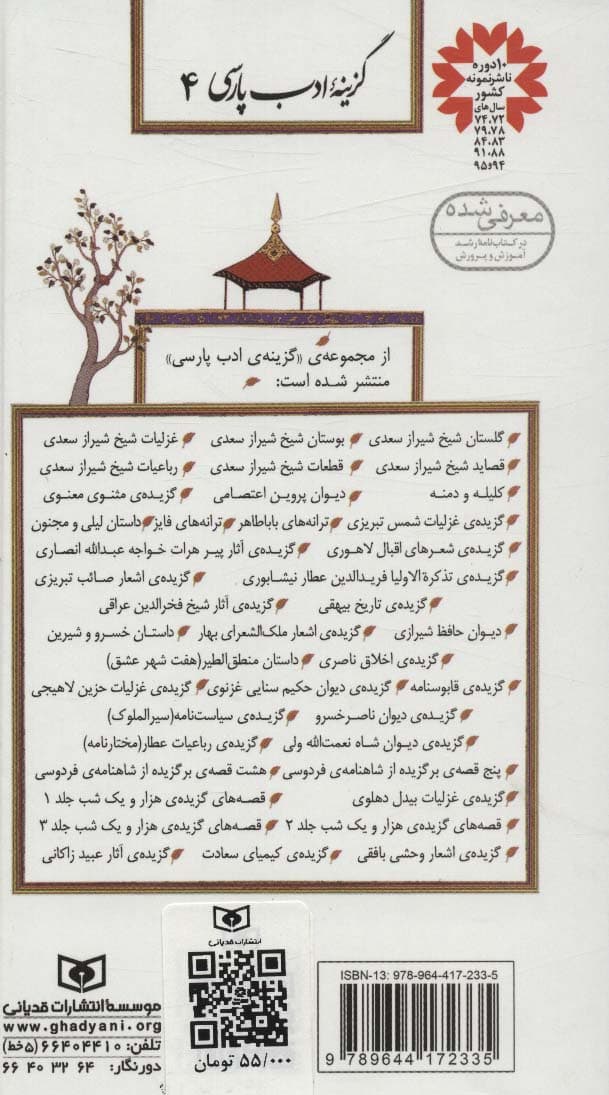 گزینهٔ ادب پارسی ۴
۱۰ دوره
ناشر نمونه
کشور
سال‌های
۷۴،۷۲
۷۹،۷۸
۸۴،۸۳
۹۱،۸۸
۹۴و۹۵
معرفی شده
در کتاب‌نامه رشد
آموزش و پرورش
از مجموعه‌ی «گزینه‌ی ادب پارسی»
منتشر شده است:
گلستان شیخ شیراز سعدی بوستان شیخ شیراز سعدی غزلیات شیخ شیراز سعدی
قصاید شیخ شیراز سعدی قطعات شیخ شیراز سعدی رباعیات شیخ شیراز سعدی
کلیله و دمنه دیوان پروین اعتصامی گزیده‌ی مثنوی معنوی
گزیده‌ی غزلیات شمس تبریزی ترانه‌های باباطاهر ترانه‌های فایز داستان لیلی و مجنون
گزیده‌ی شعرهای اقبال لاهوری گزیده‌ی آثار پیر هرات خواجه عبدالله انصاری
گزیده‌ی تذکرةالاولیا فریدالدین عطار نیشابوری گزیده‌ی اشعار صائب تبریزی
گزیده‌ی تاریخ بیهقی گزیده‌ی آثار شیخ فخرالدین عراقی
دیوان حافظ شیرازی گزیده‌ی اشعار ملک‌الشعرای بهار داستان خسرو و شیرین
گزیده‌ی اخلاق ناصری داستان منطق‌الطیر(هفت شهر عشق)
گزیده‌ی قابوسنامه گزیده‌ی دیوان حکیم سنایی غزنوی گزیده‌ی غزلیات حزین لاهیجی
گزیده‌ی دیوان ناصرخسرو گزیده‌ی سیاست‌نامه(سیرالملوک)
گزیده‌ی دیوان شاه نعمت‌الله ولی گزیده‌ی رباعیات عطار(مختارنامه)
پنج قصه‌ی برگزیده از شاهنامه‌ی فردوسی هشت قصه‌ی برگزیده از شاهنامه‌ی فردوسی
گزیده‌ی غزلیات بیدل دهلوی قصه‌های گزیده‌ی هزار و یک شب جلد ۱
قصه‌های گزیده‌ی هزار و یک شب جلد ۲ قصه‌های گزیده‌ی هزار و یک شب جلد ۳
گزیده‌ی اشعار وحشی بافقی گزیده‌ی کیمیای سعادت گزیده‌ی آثار عبید زاکانی
انتشارات قدیانی
۵۵/۰۰۰ تومان
ISBN-13: 978-964-417-233-5
9 789644 172335
موسسهٔ انتشارات قدیانی
www.ghadyani.org
تلفن: ۶۶۴۰۴۴۱۰ (۵خط)
دورنگار: ۶۶ ۴۰ ۳۲ ۶۴